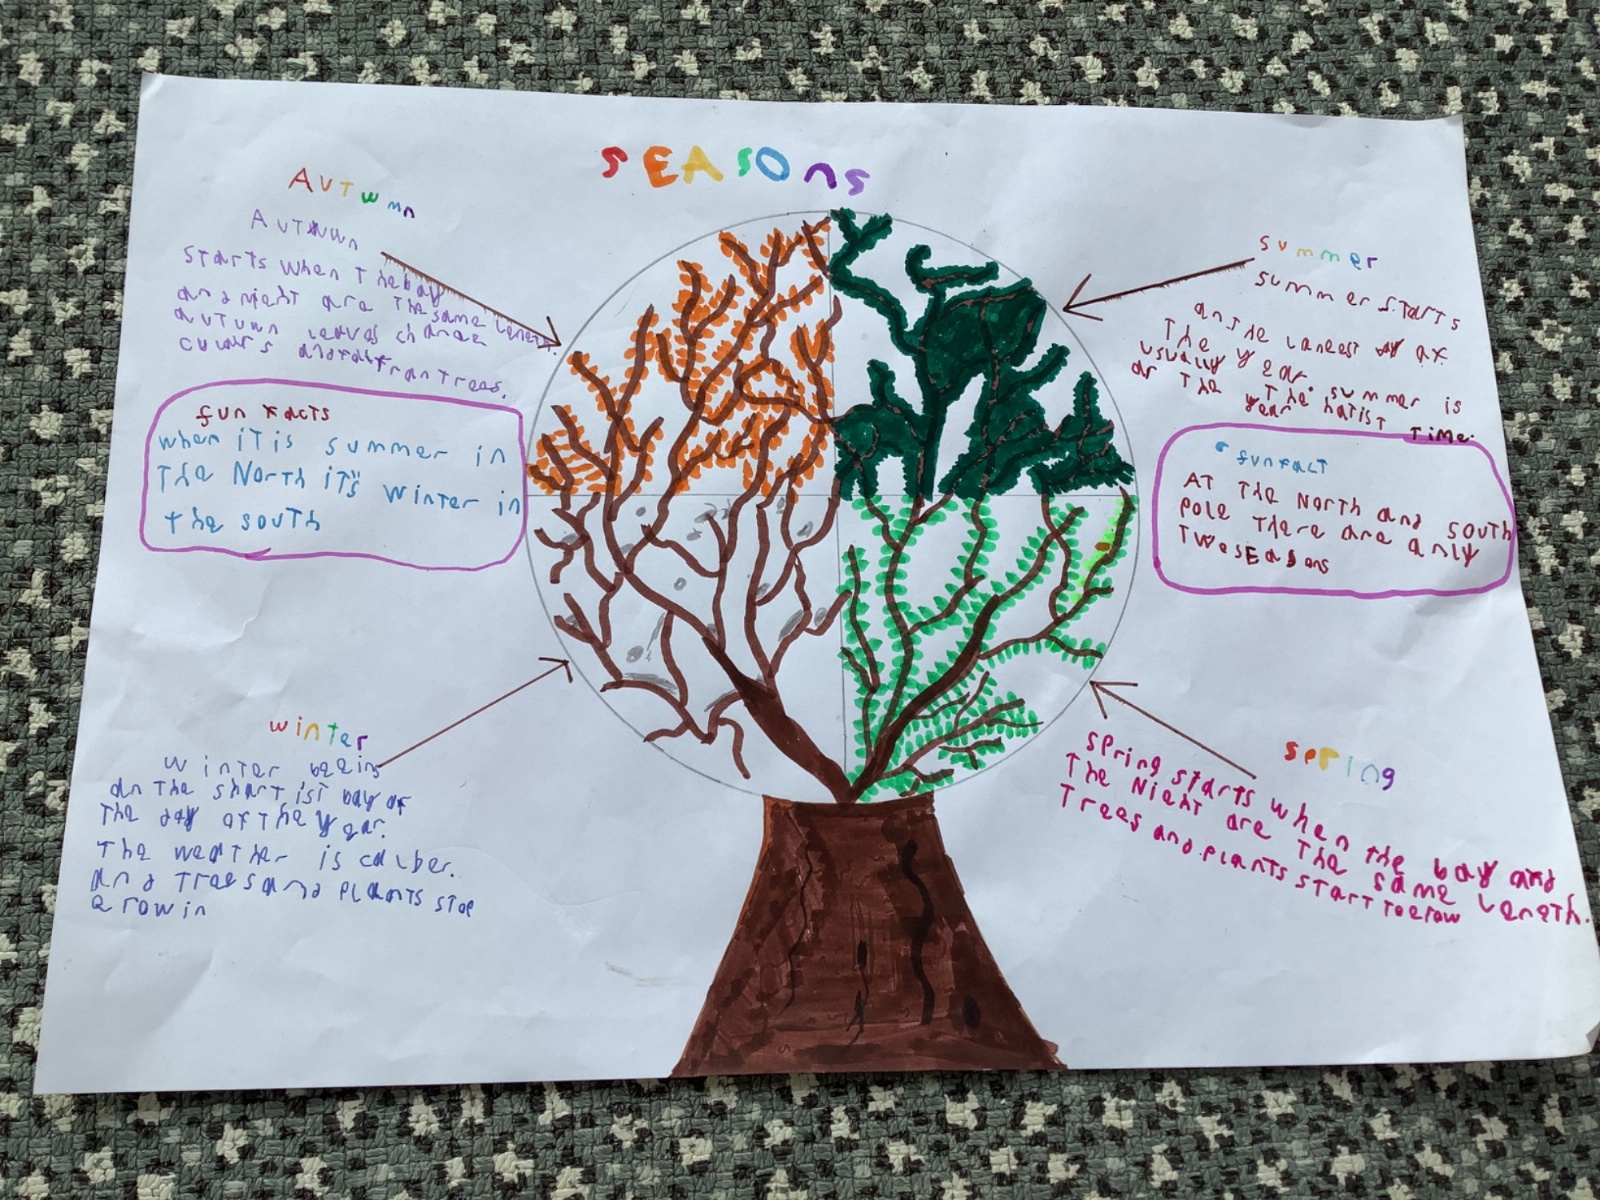 SEASONS
AUTWMN
AUTWWN
STARTS When The bay
and night are The same Length.
AUTUWN Leaves change
culuors and fall fran trees.
fun FACTS
when iT is summer in
The North iT's winter in
The south
winter
winTer begins
an The shartist bay af
The day af The year.
The weather is coulber.
and Trees and plants stop
growin
summer
summer sTarTs
an The langest day af
The year. summer is
usually The hatist Time
af The year
funfact
AT The North and south
pole There are anly
Two seasons
spring
spring starts when the bay and
The Night are The same Length.
Trees and plants start to grow